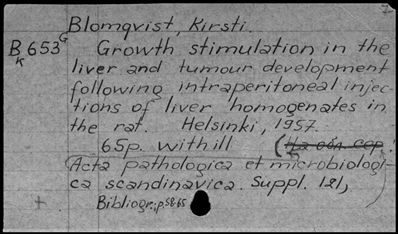 Blomqvist, Kirsti.
B K 653 G
Growth stimulation in the
liver and tumour development
following intraperitoneal injec-
tions of liver homogenates in
the rat. Helsinki, 1957.
65p. with ill (На обл. сер.:
Acta pathologica et microbiologi-
ca scandinavica. Suppl. 121)
Bibliogr.: p. 58-65